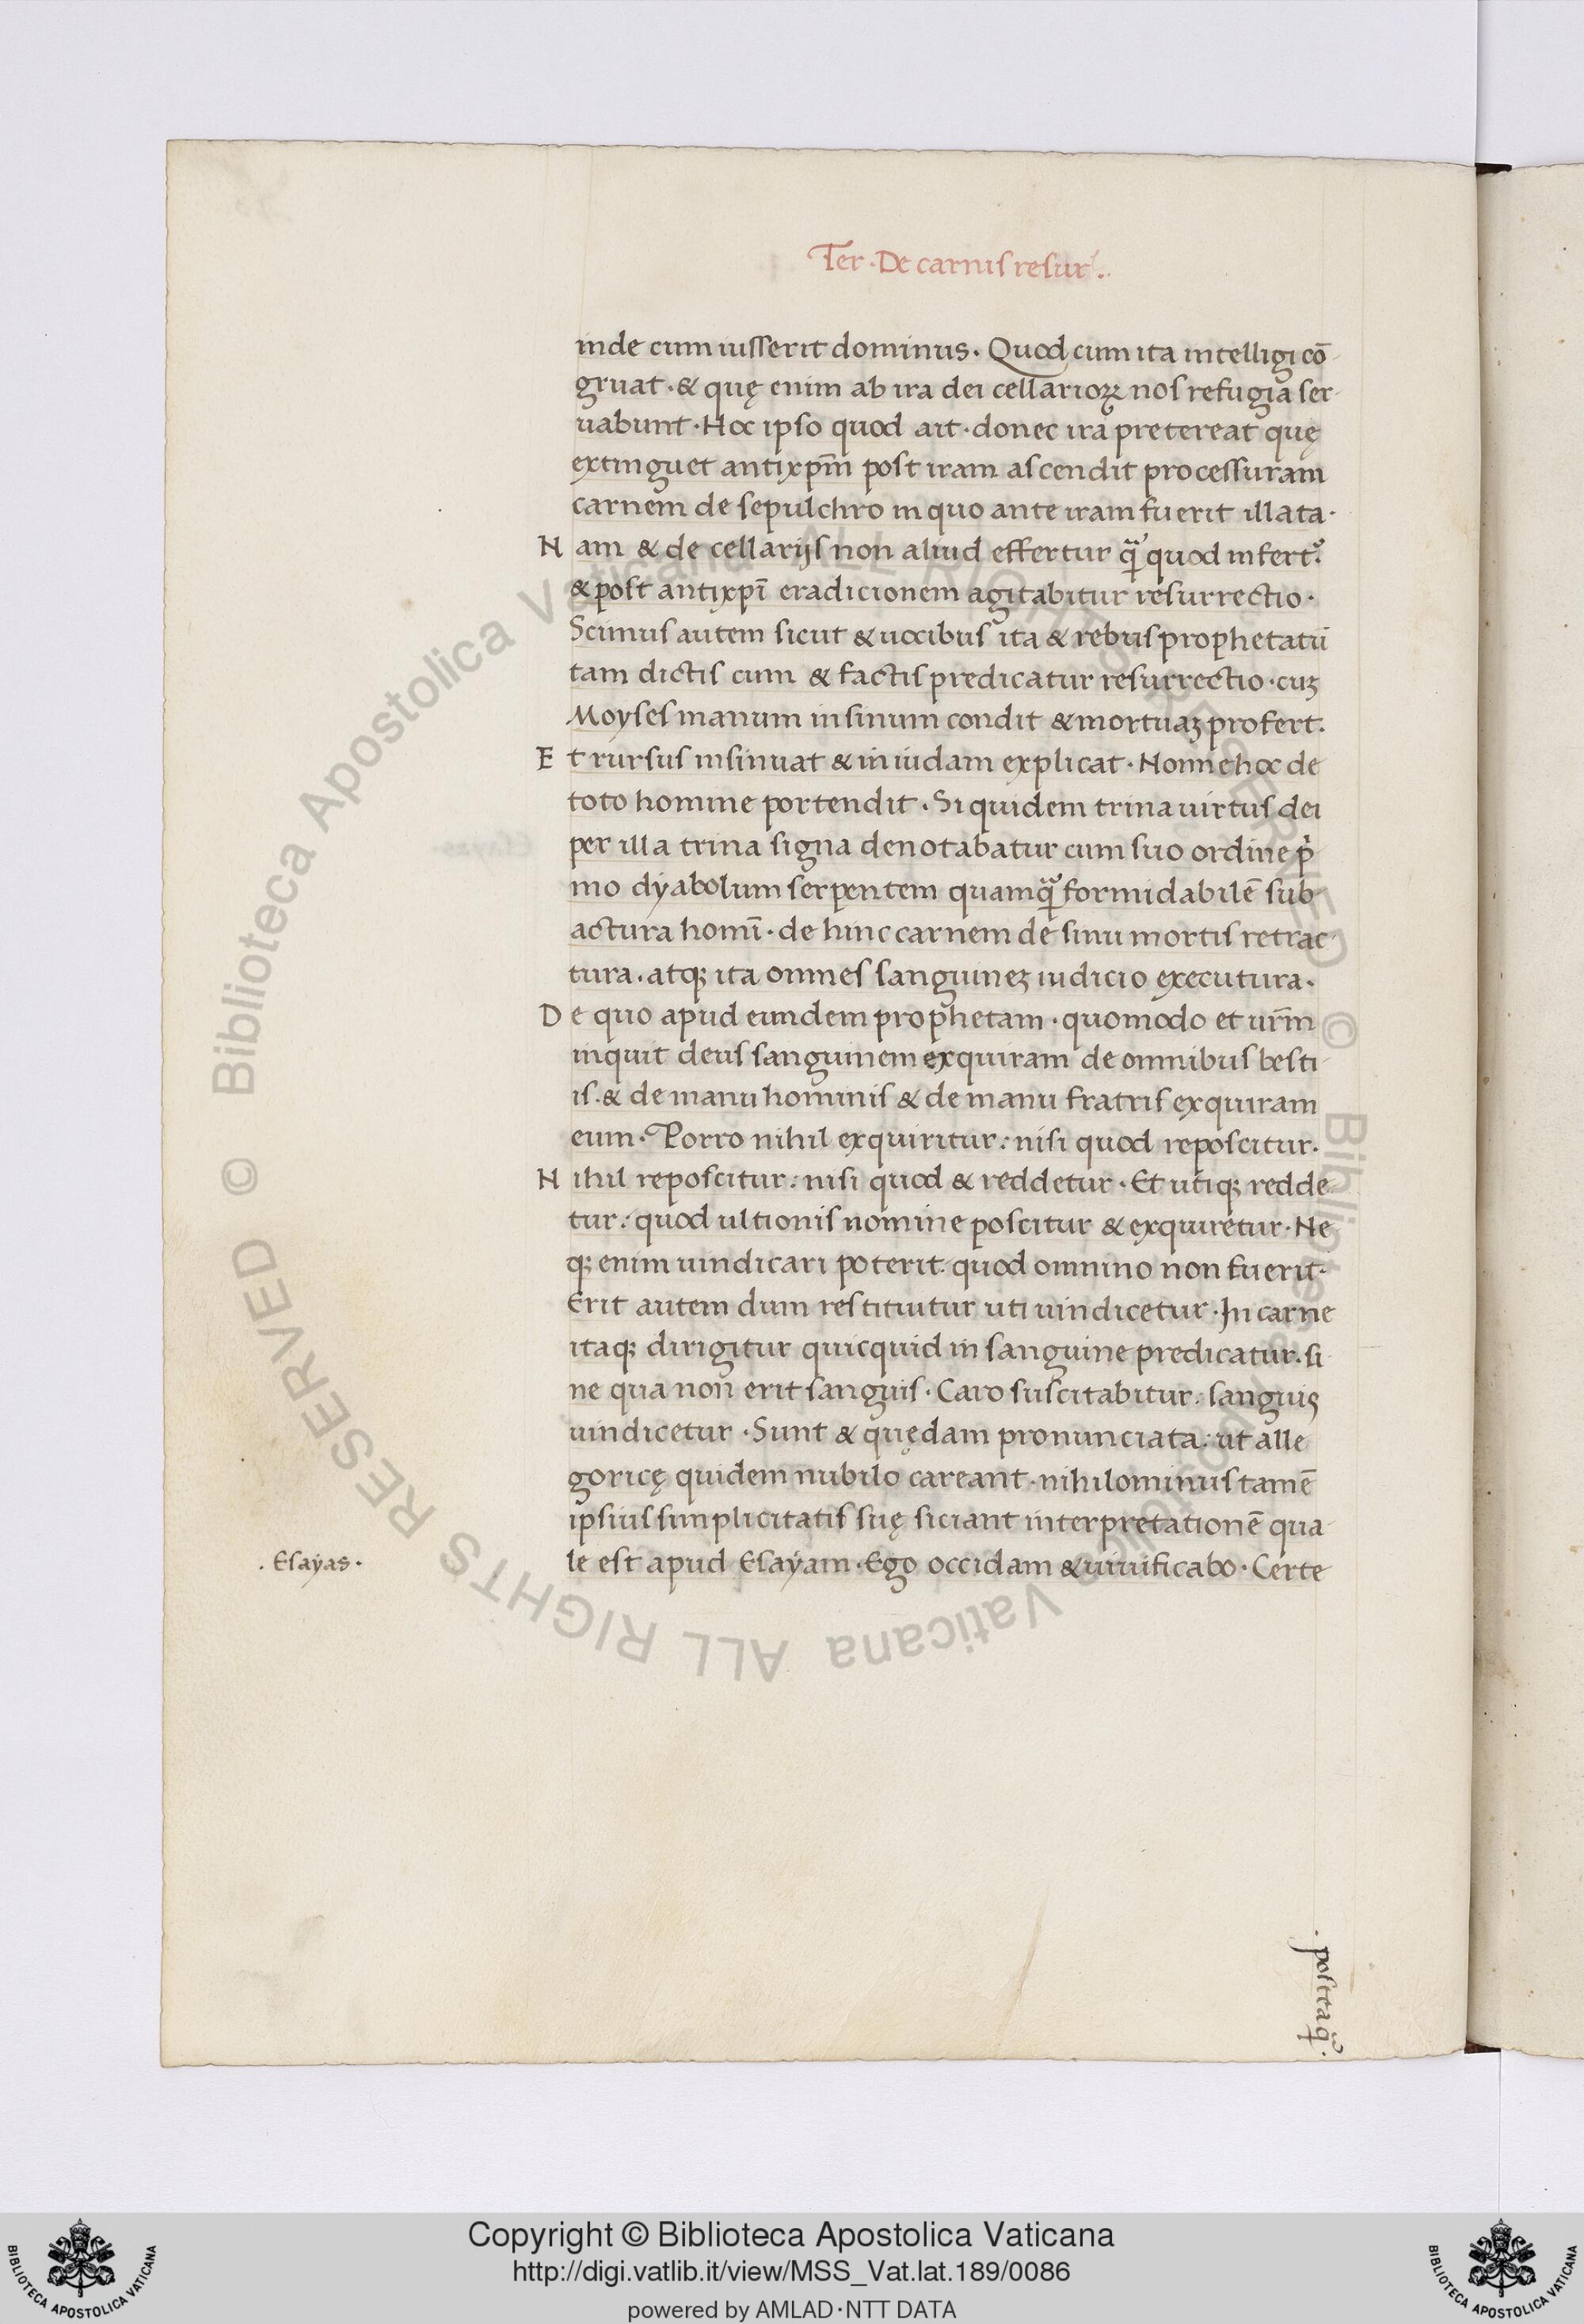 Ter · De carnis resur̄ ..
inde cum iusserit dominus · Quod cum ita intelligi cō
gruat · & quę enim ab ira dei cellarioꝝ nos refugia ser-
uabunt · Hoc ipso quod ait · donec ira pretereat quę
extinguet antixpm̄ post iram ascendit processuram
carnem de sepulchro in quo ante iram fuerit illata ·
Nam & de cellarijs non aliud effertur q̣ͣ quod infert᷑
& post antixpī eradicionem agitabitur resurrectio ·
Scimus autem sicut & uocibus ita & rebus prophetatū
tam dictis cum & factis predicatur resurrectio · cuȝ
Moyses manum in sinum condit & mortuaȝ profert.
Et rursus insinuat & in iudam explicat · Nonne hoc de
toto homine portendit · Si quidem trina uirtus dei
per illa trina signa denotabatur cum suo ordine pⁱ
mo dyabolum serpentem quamq̣ͣ formidabilē sub-
actura homī · de hinc carnem de sinu mortis retrac-
tura . atqꝫ ita omnes sanguineȝ iudicio executura .
De quo apud eundem prophetam · quomodo et ur̄m
inquit deus sanguinem exquiram de omnibus besti-
is . & de manu hominis & de manu fratris exquiram
eum · Porro nihil exquiritur : nisi quod reposcitur .
Nihil reposcitur : nisi quod & reddetur · Et utiqꝫ redde
tur : quod ultionis nomine poscitur & exquiretur · Ne
qꝫ enim uindicari poterit · quod omnino non fuerit ·
Erit autem dum restituitur uti uindicetur · In carne
itaqꝫ dirigitur quicquid in sanguine predicatur . si-
ne qua non erit sanguis · Caro suscitabitur : sanguis
uindicetur · Sunt & quędam pronunciata : ut alle
goricę quidem nubilo careant · nihilominus tamē
ipsius simplicitatis suę siciant interpretationē qua-
. Esayas · le est apud Esayam · Ego occidam & uiuificabo · Certe
· posteaq̣ͣ ·
Copyright © Biblioteca Apostolica Vaticana
http://digi.vatlib.it/view/MSS_Vat.lat.189/0086
powered by AMLAD·NTT DATA
BIBLIOTECA APOSTOLICA VATICANA
BIBLIOTECA APOSTOLICA VATICANA
© Biblioteca Apostolica Vaticana ALL RIGHTS RESERVED © Biblioteca Apostolica Vaticana ALL RIGHTS RESERVED